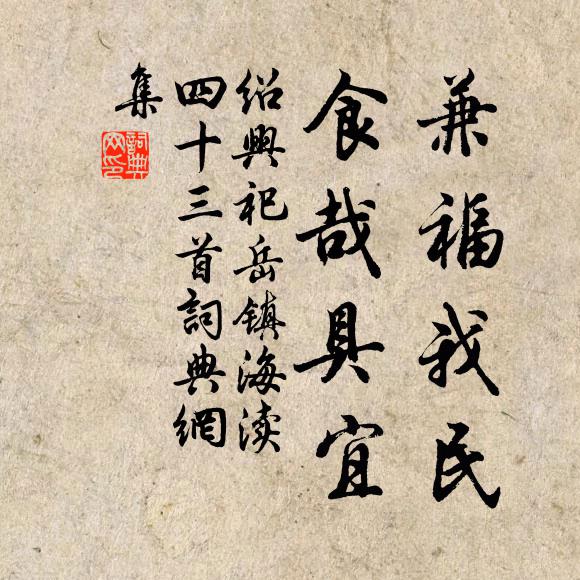 兼福我民
食哉具宜
绍興祀岳镇海渎
四十三首詞典網
集
詞典
网印